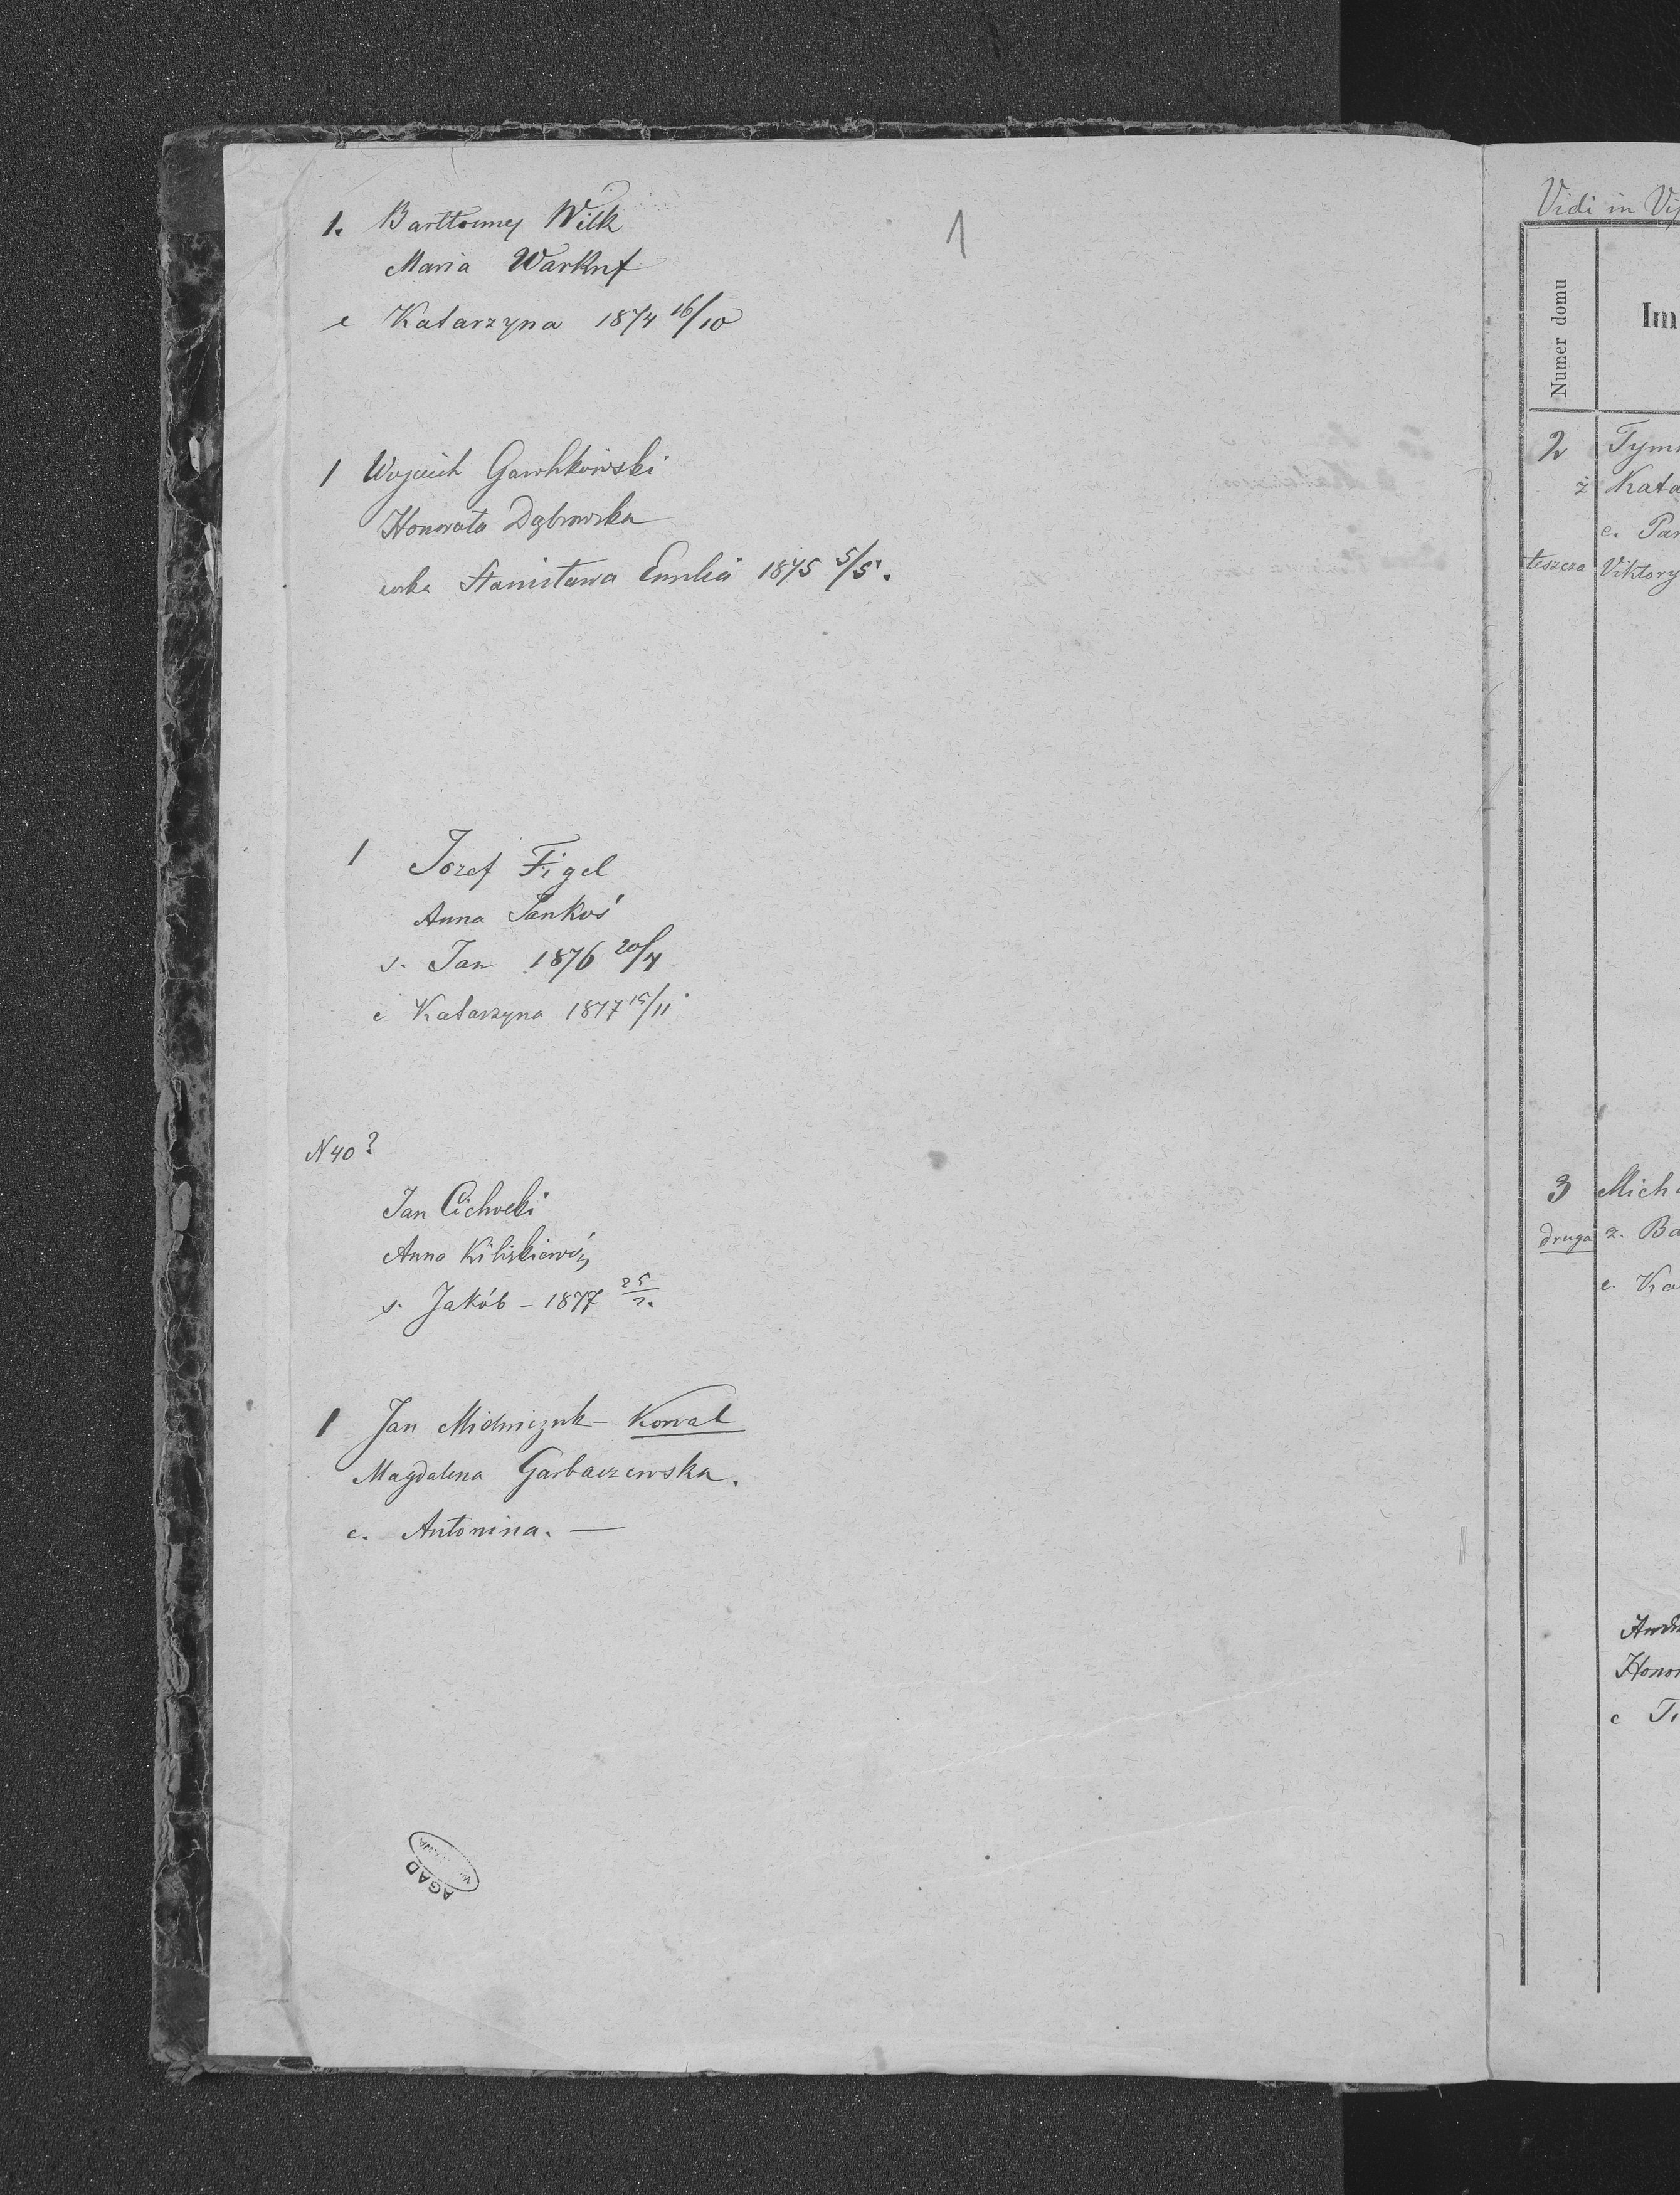 1
1. Bartłomiej Wilk
Maria Warknf
c Katarzyna 1874 16/10
1 Wojciech Gawlikowski
Honorata Dąbrowska
córka Stanisława Emilia 1875 5/5.
1 Jozef Figel
Anna Pankoś
s. Jan 1876 20/4
c Katarzyna 1877 15/11
N 40?
Jan Cichocki
Anna Kiliśkiewicz
s. Jakób - 1877 25/2.
1 Jan Midmiczuk - Kowal
Magdalena Garbaczewska.
c. Antonina. —
AGAD
Vidi in
Numer domu
Im
2 Tym
ż Kata
c. Par
teszcza Viktory
3 Mich
druga ż. Ba
c. Ka
Hono
c